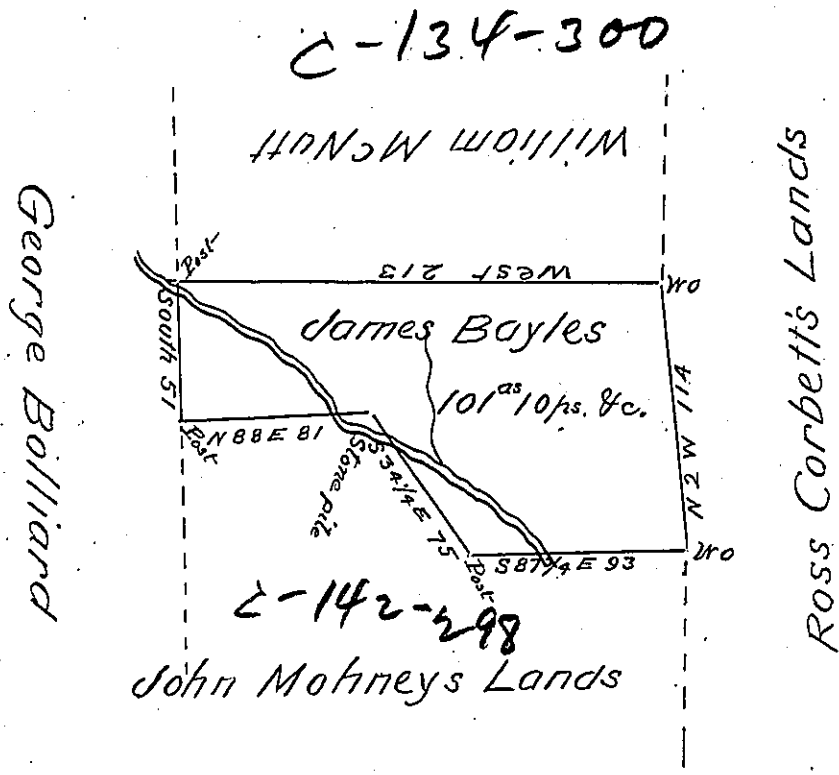 C-134-300
William McNutt
George Bolliard
Ross Corbett's Lands
Post
West 213
WO
South 51
James Bayles
101as 10ps. &c.
N 2 W 114
Post
N 88 E 81
Stone pile
S 34 1/4 E 75
Post
S 87 1/4 E 93
WO
C-142-298
John Mohneys Lands